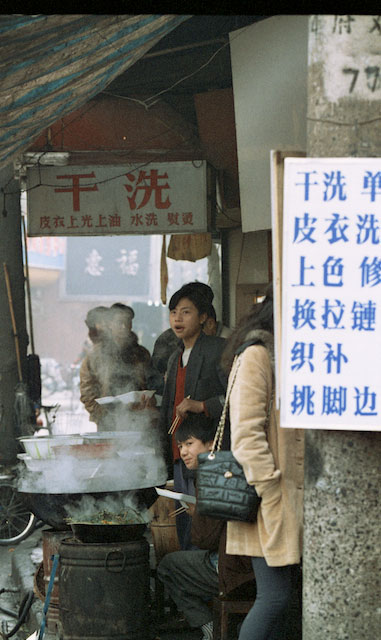 干洗
皮衣上光上油 水洗 熨烫
干洗 单
皮衣洗
上色 修
换拉链
织补
挑脚边
77